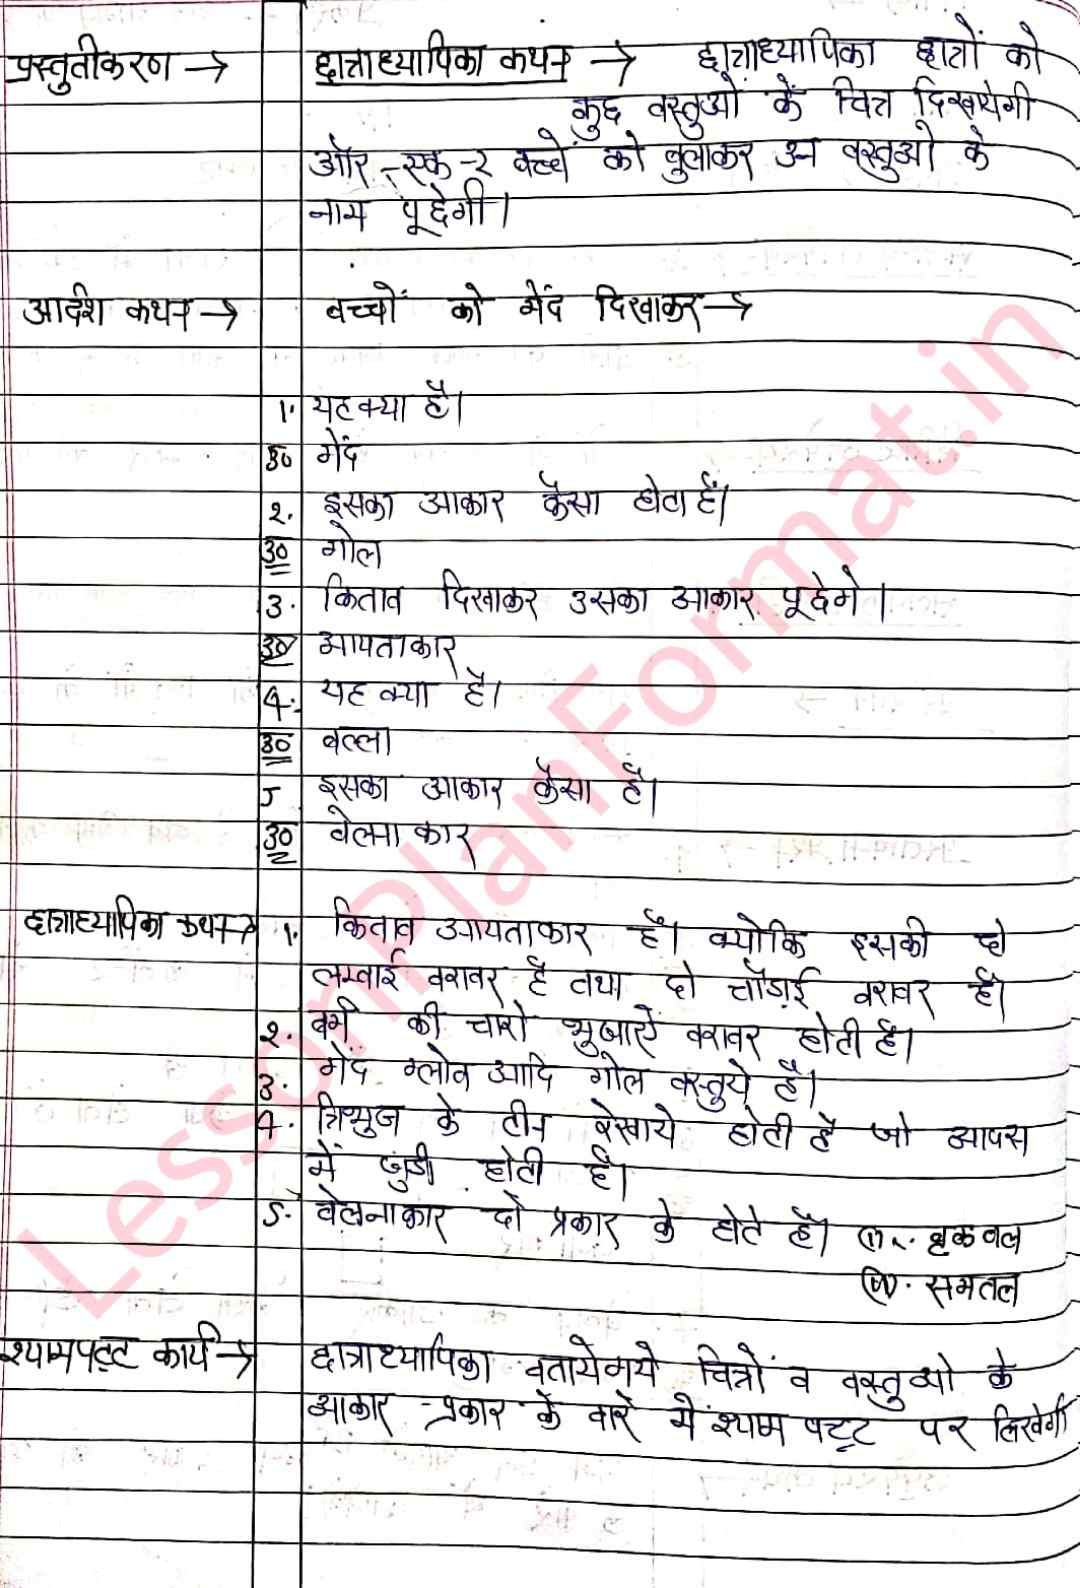 प्रस्तुतीकरण → छात्राध्यापिका कथन → छात्राध्यापिका छात्रों को
कुछ वस्तुओं के चित्र दिखायेगी
और एक-२ बच्चे को बुलाकर उन वस्तुओ के
नाम पूछेगी।
आदर्श कथन → बच्चों को गेंद दिखाकर →
1. यह क्या है।
उ० गेंद
2. इसका आकार कैसा होता है।
उ० गोल
3. किताब दिखाकर उसका आकार पूछेगे।
उ० आयताकार
4. यह क्या है।
उ० बल्ला
5 इसका आकार कैसा है।
उ० वेलनाकार
छात्राध्यापिका कथन → 1. किताब आयताकार है। क्योकि इसकी दो
लम्बाई बराबर है तथा दो चौड़ाई बराबर है।
2. वर्ग की चारो भुजाऐं बराबर होती है।
3. गेंद ग्लोब आदि गोल वस्तुये है।
4. त्रिभुज के तीन रेखाये होती है जो आपस
में जुडी होती है।
5. वेलनाकार दो प्रकार के होते है। (i). वक्र
(ii). समतल
श्यामपट्ट कार्य → छात्राध्यापिका बतायेगये चित्रों व वस्तुओ के
आकार-प्रकार के बारे में श्याम पट्ट पर लिखेगी
LessonPlanFormat.in